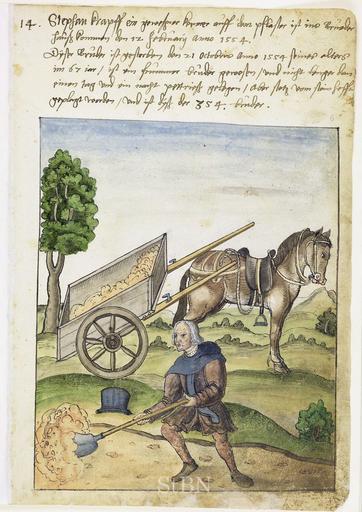 14. Steffan krapff ein gewesner karner auff dem pflaster ist ins Brueder
hauß kommen den 12 Februarij Anno 1554.
Dyser Bruder ist gestorben den 21 Octobris Anno 1554 seines alters
im 67 iar / ist ein frummer bruder gewesen / und nicht lenger dan
einen tag und ein nacht gelegen / Aber stetz vom stain
geplagt worden / und ist diß der 354. bruder.
StBN